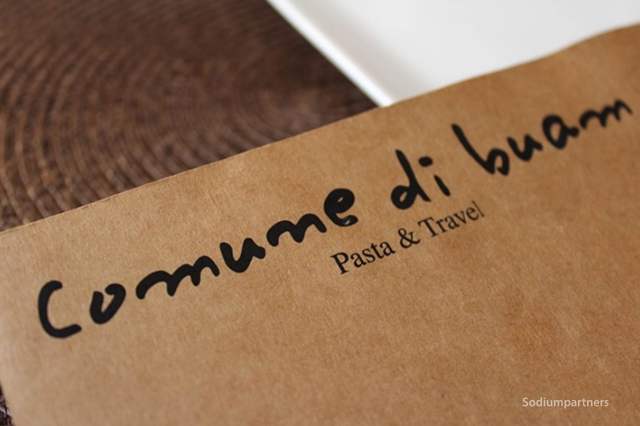 Comune di buam
Pasta & Travel
Sodiumpartners